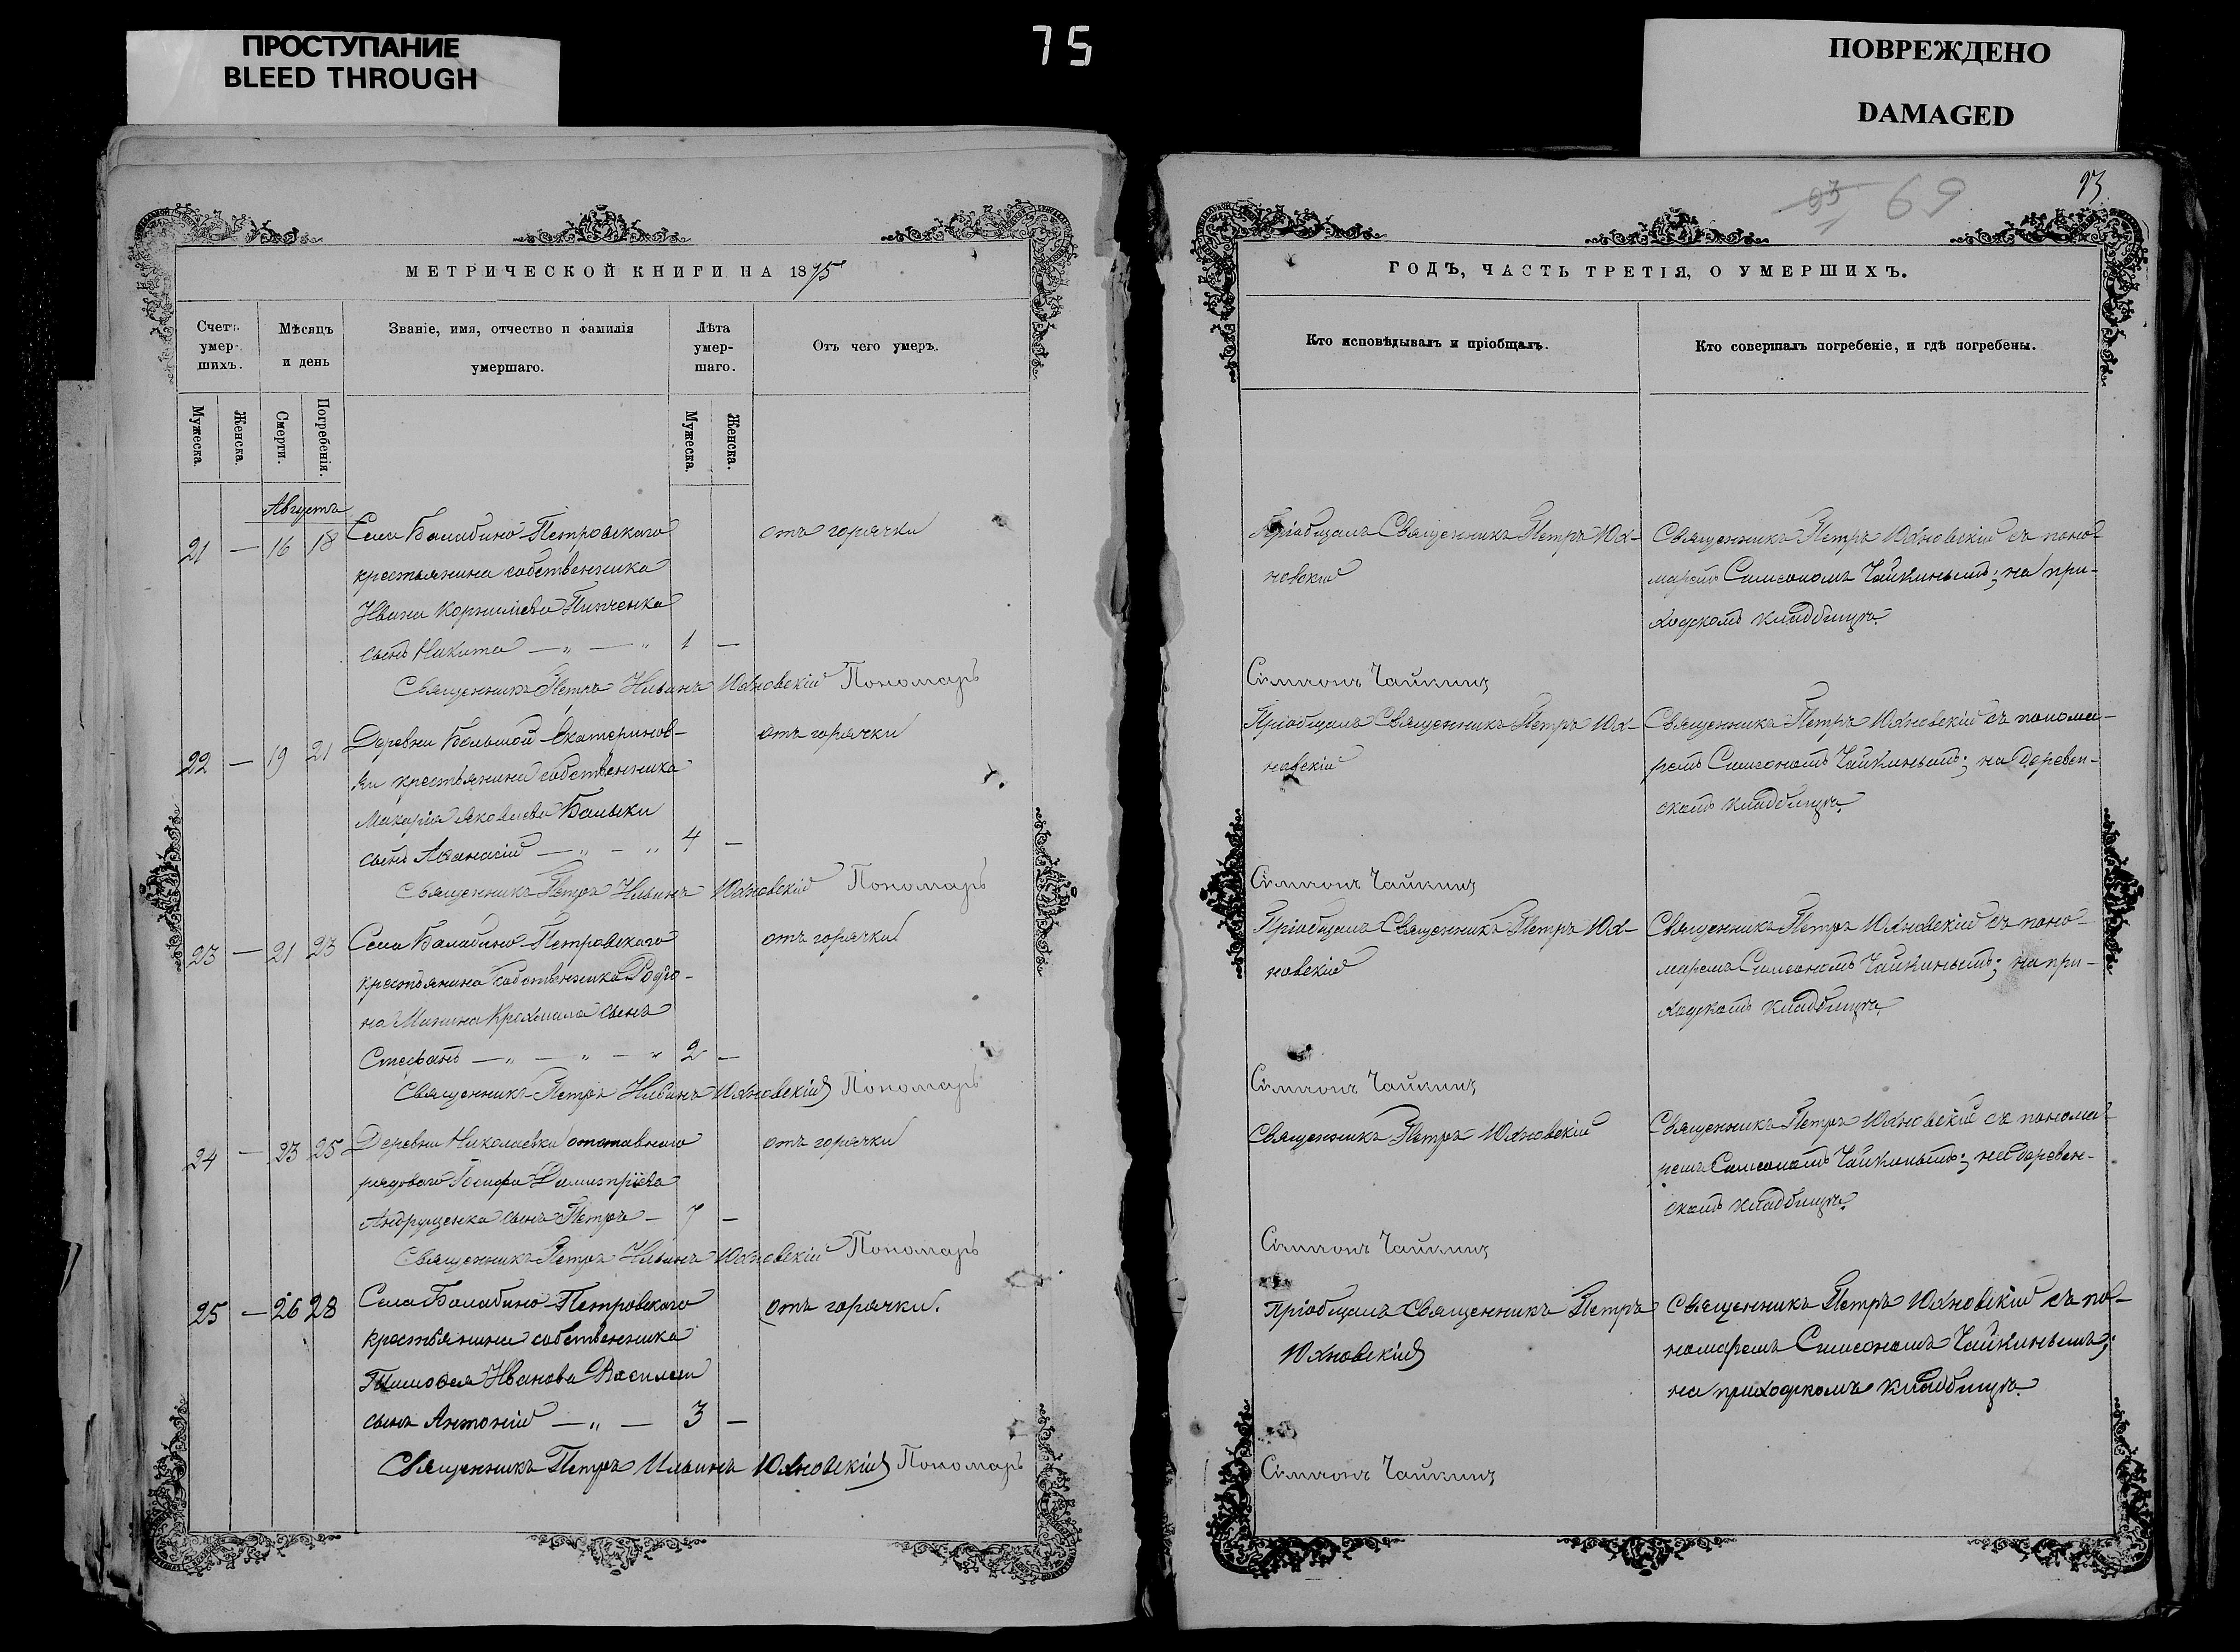 ПРОСТУПАНИЕ
BLEED THROUGH
75
ПОВРЕЖДЕНО
DAMAGED
МЕТРИЧЕСКОЙ КНИГИ НА 1875
Счетъ умер-шихъ.
Мѣсяцъ и день
Званіе, имя, отчество и фамилія умершаго.
Лѣта умер-шаго.
Отъ чего умеръ.
Мужеска.
Женска.
Смерти.
Погребенія.
Мужеска.
Женска.
Августъ
21 — 16 18 Села Балабино-Петровскаго
отъ горячки
крестьянина собственника
Ивана Корнилiева
сынъ Никита — „ — „ 1 —
Священникъ Петръ Ильинъ Юхновскій Пономарь
22 — 19 21 Деревни Большой Екатеринов-
отъ горячки
ки крестьянина собственника
Макарія Яковлева
сынъ Аѳанасій — „ — „ 4 —
Священникъ Петръ Ильинъ Юхновскій Пономарь
23 — 21 23 Села Балабино-Петровскаго
отъ горячки
крестьянина собственника Родіо-
на Минина Крохмала сынъ
Стефанъ — „ — „ — „ 2 —
Священникъ Петръ Ильинъ Юхновскій Пономарь
24 — 23 25 Деревни Николаевки отставнаго
отъ горячки
рядоваго Іосифа Димитріева
Андрущенка сынъ Петръ — 7 —
Священникъ Петръ Ильинъ Юхновскій Пономарь
25 — 26 28 Села Балабино-Петровскаго
отъ горячки.
крестьянина собственника
Тимоѳея Иванова
сынъ Антоній — „ — 3 —
Священникъ Петръ Ильинъ Юхновскій Пономарь
93 69
93
ГОДЪ, ЧАСТЬ ТРЕТІЯ, О УМЕРШИХЪ.
Кто исповѣдывалъ и пріобщалъ.
Кто совершалъ погребеніе, и гдѣ погребены.
Пріобщалъ Священникъ Петръ Юх-
новскій
Священникъ Петръ Юхновскій съ поно-
маремъ Симеономъ Чайкинымъ; на при-
ходскомъ кладбищѣ.
Симеонъ Чайкинъ
Пріобщалъ Священникъ Петръ Юх-
новскій
Священникъ Петръ Юхновскій съ понома-
ремъ Симеономъ Чайкинымъ; на деревен-
скомъ кладбищѣ.
Симеонъ Чайкинъ
Пріобщалъ Священникъ Петръ Юх-
новскій
Священникъ Петръ Юхновскій съ поно-
маремъ Симеономъ Чайкинымъ; на при-
ходскомъ кладбищѣ.
Симеонъ Чайкинъ
Священникъ Петръ Юхновскій
Священникъ Петръ Юхновскій съ понома-
ремъ Симеономъ Чайкинымъ; на деревен-
скомъ кладбищѣ.
Симеонъ Чайкинъ
Пріобщалъ Священникъ Петръ
Юхновскій
Священникъ Петръ Юхновскій съ по-
номаремъ Симеономъ Чайкинымъ;
на приходскомъ кладбищѣ.
Симеонъ Чайкинъ